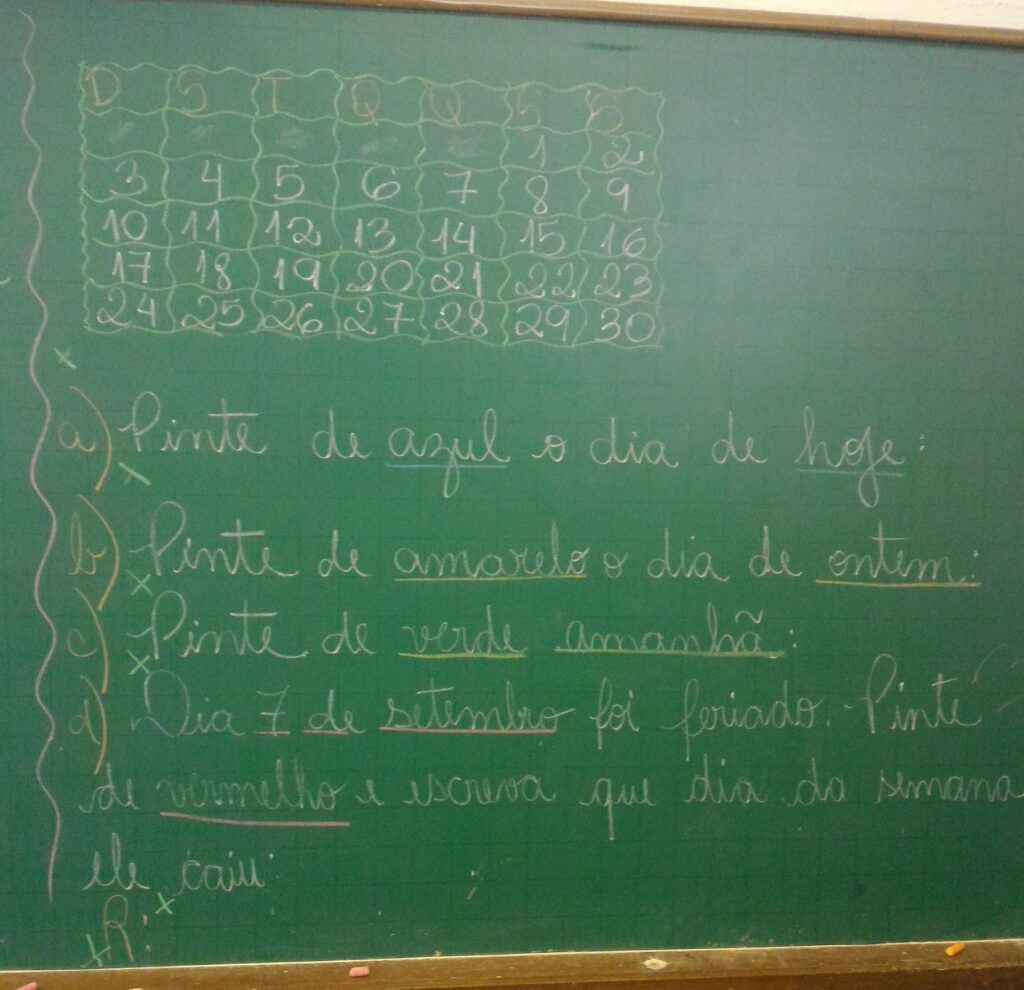 D S T Q Q S S
1 2
3 4 5 6 7 8 9
10 11 12 13 14 15 16
17 18 19 20 21 22 23
24 25 26 27 28 29 30
a) Pinte de azul o dia de hoje:
b) Pinte de amarelo o dia de ontem:
c) Pinte de verde amanhã:
d) Dia 7 de setembro foi feriado. Pinte
de vermelho e escreva que dia da semana
ele caiu:
R: